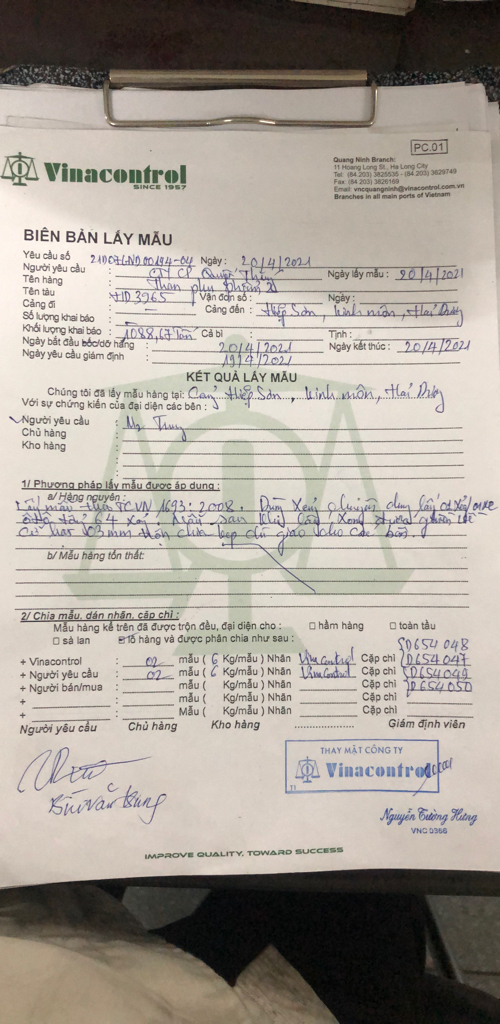 PC.01
Vinacontrol
SINCE 1957
Quang Ninh Branch:
11 Hoang Long St., Ha Long City
Tel: (84.203) 3825535 - (84.203) 3629749
Fax: (84.203) 3826169
Email: vncquangninh@vinacontrol.com.vn
Branches in all main ports of Vietnam
BIÊN BẢN LẤY MẪU
Yêu cầu số 21D07GND00194-04 Ngày : 20/4/2021
Người yêu cầu : CTCP Quyết Thắng Ngày lấy mẫu : 20/4/2021
Tên hàng : Than phụ phẩm 2
Tên tàu : HD 3265 Vận đơn số : Ngày :
Cảng đi : Cảng đến : Hiệp Sơn, Kinh môn, Hải Dương
Số lượng khai báo :
Khối lượng khai báo : 1088,67 Tấn Cả bì : Tịnh :
Ngày bắt đầu bốc/dỡ hàng : 20/4/2021 Ngày kết thúc : 20/4/2021
Ngày yêu cầu giám định : 19/4/2021
KẾT QUẢ LẤY MẪU
Chúng tôi đã lấy mẫu hàng tại: Cảng Hiệp Sơn, Kinh môn, Hải Dương
Với sự chứng kiến của đại diện các bên :
Người yêu cầu : Mr Trung
Chủ hàng :
Kho hàng :
1/ Phương pháp lấy mẫu được áp dụng :
a/ Hàng nguyên :
Lấy mẫu theo TCVN 1693: 2008. Dùng xẻng chuyên dụng lấy
64 . Mẫu sau khi lấy xong
03 mm trộn chia giao cho các bên.
b/ Mẫu hàng tổn thất:
2/ Chia mẫu, dán nhãn, cặp chì :
Mẫu hàng kể trên đã được trộn đều, đại diện cho : □ hầm hàng □ toàn tầu
□ sà lan lô hàng và được phân chia như sau :
+ Vinacontrol : 02 mẫu ( 6 Kg/mẫu ) Nhãn Vinacontrol Cặp chì D654 048 D654 047
+ Người yêu cầu : 02 mẫu ( 6 Kg/mẫu ) Nhãn Vinacontrol Cặp chì D654 049 D654 050
+ Người bán/mua : mẫu ( Kg/mẫu ) Nhãn Cặp chì
+ : Mẫu ( Kg/mẫu ) Nhãn Cặp chì
+ : Mẫu ( Kg/mẫu ) Nhãn Cặp chì
Người yêu cầu Chủ hàng Kho hàng .................... Giám định viên
THAY MẶT CÔNG TY
Vinacontrol
Bùi Văn Trung
Nguyễn Tường Hưng
VNC 0366
IMPROVE QUALITY, TOWARD SUCCESS